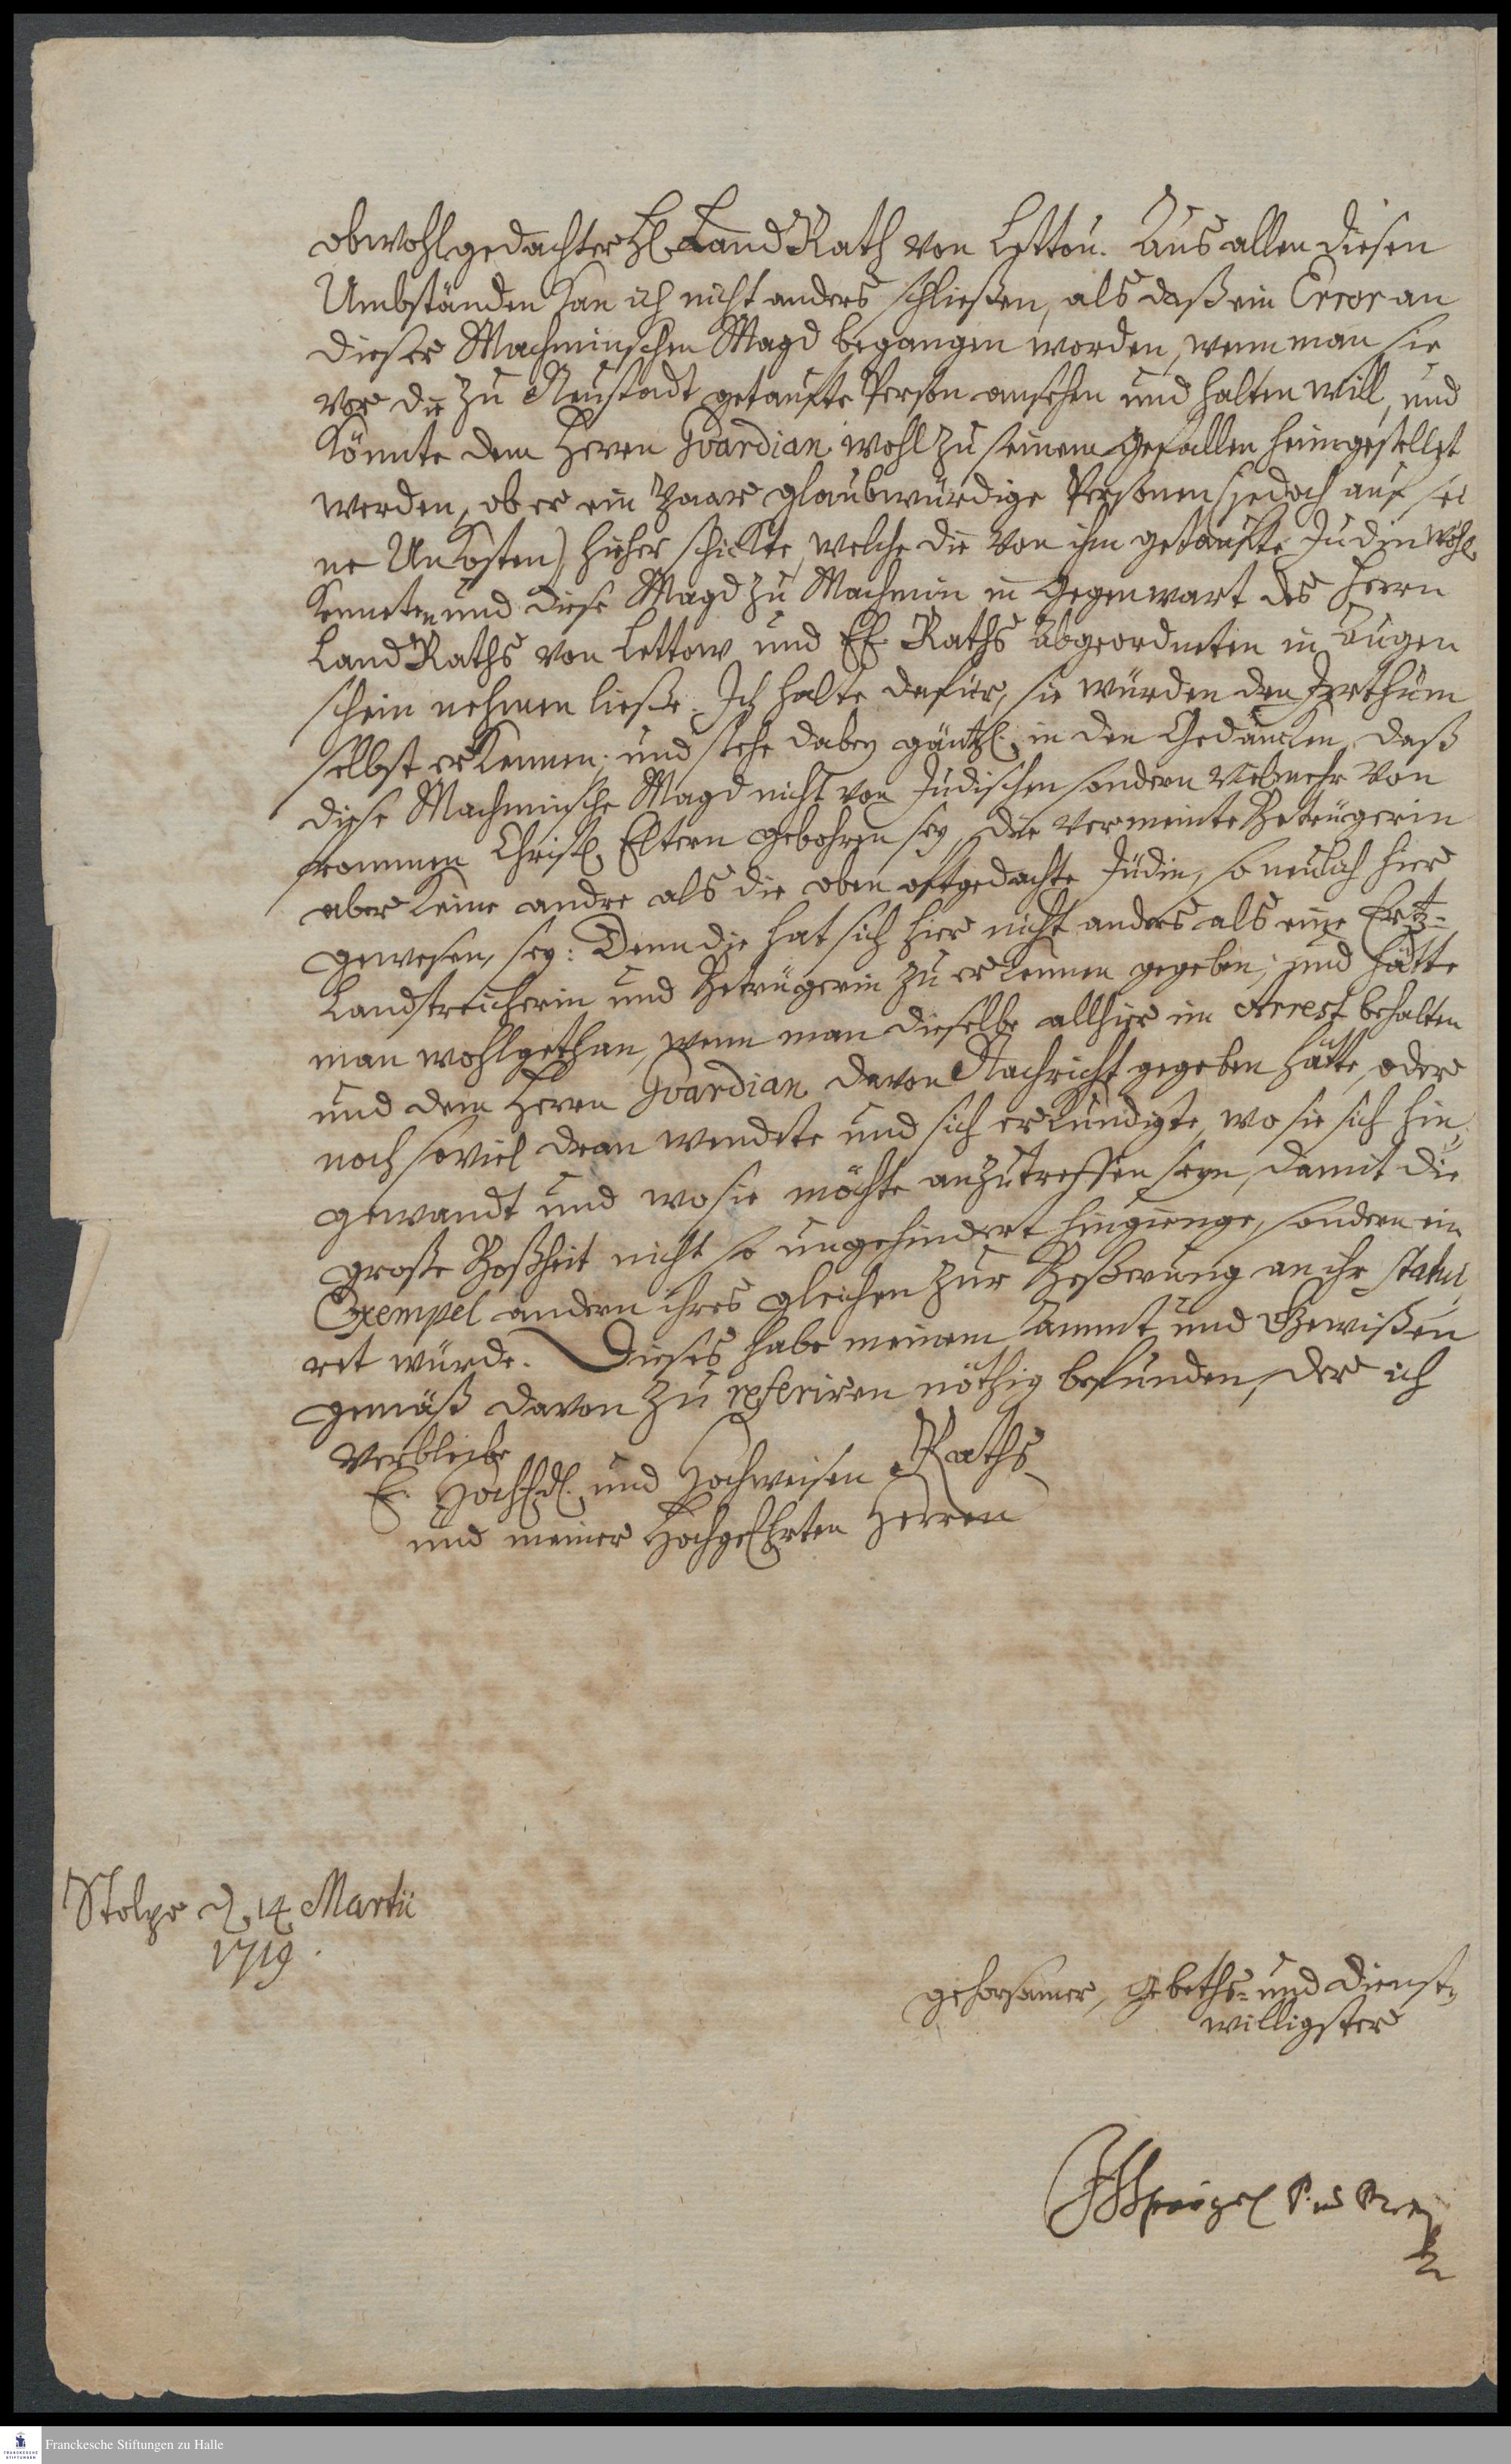 obwohlgedachter H. Land Rath von Lettou. Aus allen diesen
Umbständen kan ich nicht anders schließen, als daß ein Error an
dieser Machminschen Magd begangen worden, wenn man sie
vor die zu Neustadt getaufte Person ansehen und halten will, und
könnte dem Herrn Gvardian wohl zu seinem gefallen heimgestellet
werden, ob er ein paar glaubwürdige Personen (jedoch auf sei
ne Unkosten) hieher schickte, welche die von ihm getaufte Judin wohl
kenneten und diese Magd zu Machmin in Gegenwart des Herrn
Land Raths von Lettow und EE. Raths Abgeordneten in Augen
schein nehmen ließe. Ich halte dafür, sie würden den Irrthum
selbst erkennen; und stehe dabey gäntzl. in den Gedancken, daß
diese Machminsche Magd nicht von Judischen sondern vielmehr von
frommen Christl. Eltern gebohren sey, die vermeinte Betrügerin
aber keine andre als die oben oftgedachte Jüdin, so neulich hier
gewesen, sey: Denn die hat sich hier nicht anders als eine Ertz-
Landstreicherin und Betrügerin zu erkennen gegeben; und hätte
man wohlgethan, wenn man dieselbe allhier im Arrest behalten
und dem Herrn Gvardian davon Nachricht gegeben hätte, oder
noch soviel dran wendete und sich erkundigte, wo sie sich hin,
gewandt und wo sie möchte anzutreffen seyn, damit die
große Boßheit nicht so ungehindert hingienge, sondern ein
Exempel andern ihres gleichen zur Beßerung an ihr statui
ret würde. Dieses habe meinem Ammt und Gewißen
gemäß davon zu referiren nöthig befunden, der ich
verbleibe
E. HochEdl. und Hochweisen Raths
und meiner HochgeEhrten Herren
Stolpe d. 14. Martii
1719.
gehorsamer, Gebeths- und dienst,
willigster
Franckesche Stiftungen zu Halle
FRANCKESCHE
STIFTUNGEN